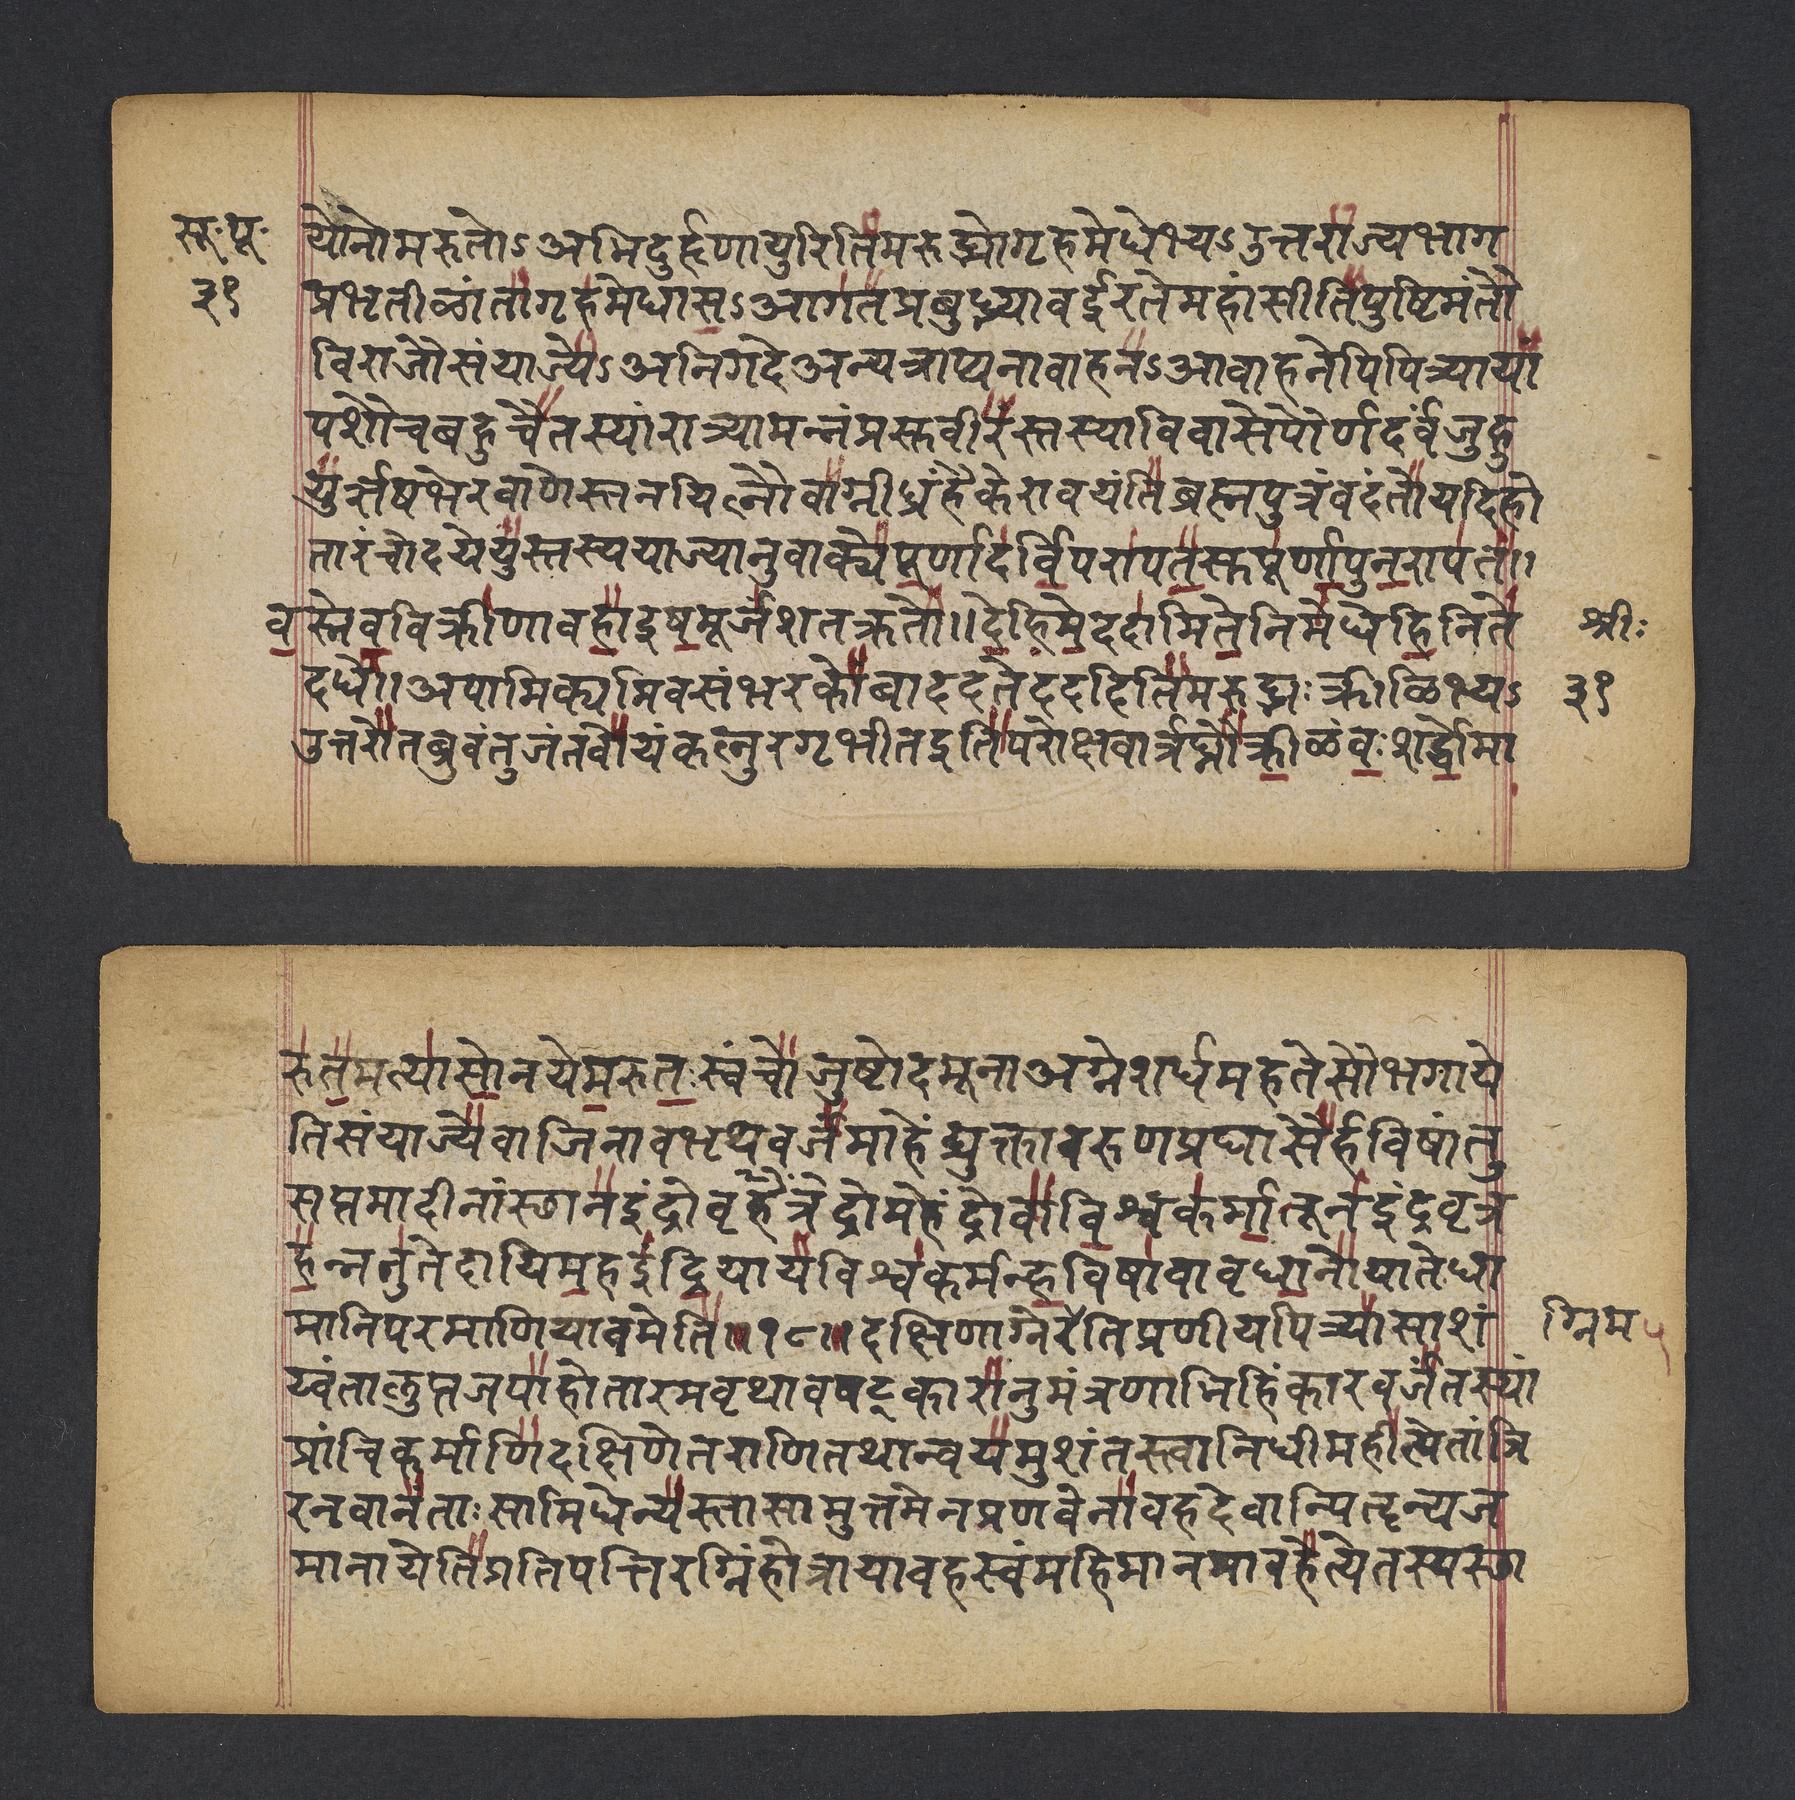 सू॰ पू॰
३१
योनोमरुतोऽअभिदुर्हृणायुरितिमरुद्भ्योगृहमेधेभ्यऽउत्तराज्यभाग
प्रभृतीळांतागृहमेधासऽआगतप्रबुध्न्यावईरतेमहांसीतिपुष्टिमंतौ
विराजौसंयाज्येऽअनिगदेअन्यत्राप्यनावाहनऽआवाहनेपिपित्र्यायां
पशौचबहुचैतस्यांरात्र्यामन्नंप्रस्तवीरंस्तस्याविवासेपौर्णदर्वंजुहु
युर्ऋषभेरवाणेस्तनयित्नौवाग्नीध्रंहैकेरावयंतिब्रह्मपुत्रंवदंतोयदिहो
तारंचोदयेयुस्तस्ययाज्यानुवाक्येपूर्णादर्विपरापतसुपूर्णापुनरापत॥
वस्नेवविक्रीणावहाइषमूर्जंशतक्रतो॥देहिमेददामितेनिमेधेहिनिते
दधौ।अपामित्थमिवसंभरकोंबाददतेददहितिमरुद्भ्यःक्रीळिभ्यऽ
श्रीः
३१
उत्तरोतब्रुवंतुजंतवोयंकृत्नुरगृभीतइतिपरोक्षवार्त्रघ्नौक्रीळंवःशर्द्धोमा
रुतमत्यासोनयेमरुतःस्वंचोजुष्टोदमूनाअग्नेशर्धमहतेसौभगाये
तिसंयाज्येवाजिनावभृथवर्जंमाहेंद्युक्तावरुणप्रघासैर्हविषांतु
सप्तमादीनांस्छानइंद्रोवृत्रहेंद्रोमहेंद्रोवाविश्वकर्मातूनइंद्रवृत्र
हन्ननुतेदायिमहइंद्रियायविश्वकर्मन्हविषावावृधानोयातेधा
मानिपरमाणियावमेति॥१८॥दक्षिणाग्नेरेतिप्रणीयपित्र्यासाशं
ग्निम
य्वंतालुप्तजपाहोतारमवृथावषट्कारानुमंत्रणाभिहिंकारवर्जंतस्यां
प्रांचिकर्माणिदक्षिणेतराणितथान्वयमुशंतस्त्वानिधीमहीत्येतांत्रि
रनवानंताःसामिधेन्यस्तासामुत्तमेनप्रणवेनावहदेवान्पितॄन्यज
मानायेतिप्रतिपत्तिरग्निंहोत्रायावहस्वंमहिमानमावहेत्येतस्यस्छा